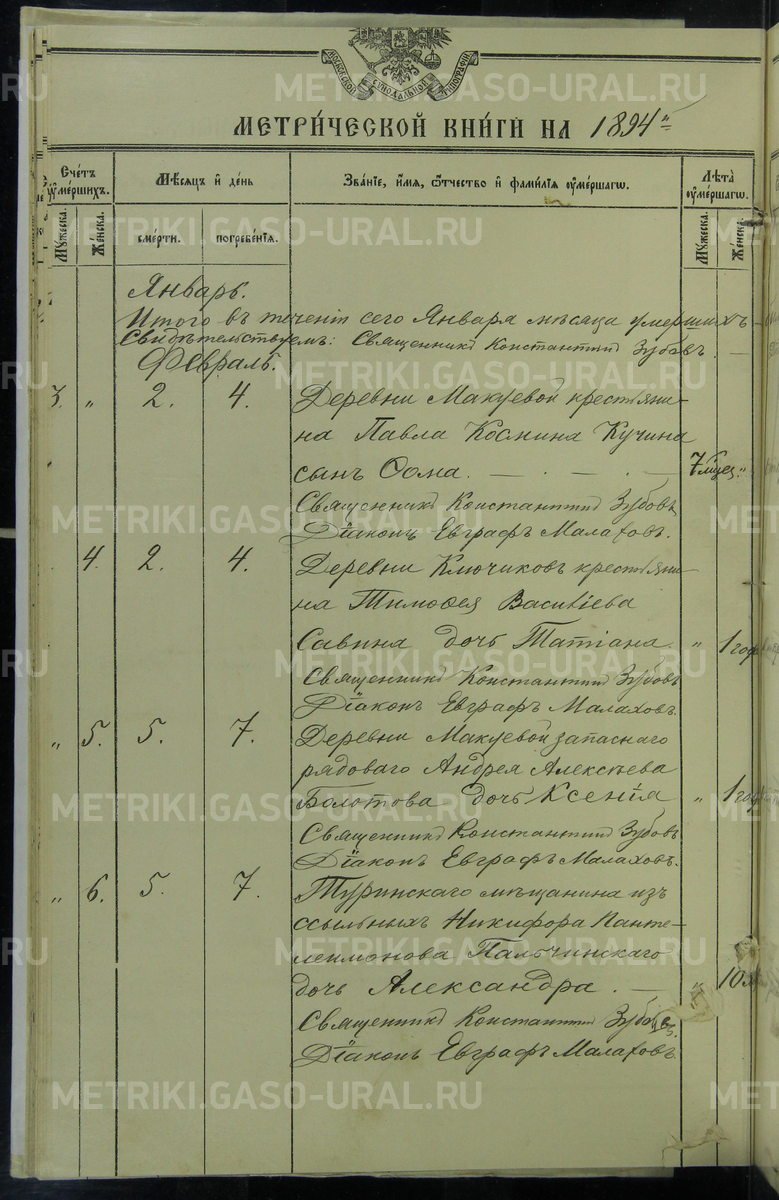 МОСКОВСКОЙ СѴНОДАЛЬНОЙ ТИПОГРАФІИ
МЕТРИ́ЧЕСКОЙ КНИ́ГИ НА 1894
Сче́тъ ᲂу҆ме́ршихъ.
Мѣ́сяцъ и҆ де́нь
Зва́нїе, и҆́мя, ѻ҆́тчество и҆ фами́лїя ᲂу҆ме́ршагѡ.
Лѣ́та ᲂу҆ме́ршагѡ.
Мꙋ́жеска.
Же́нска.
сме́рти.
погребе́нїя.
Мꙋ́жеска.
Же́нска.
Январь.
Итого въ теченіи сего Января мѣсяца умершихъ
Свидѣтельствуемъ: Священникъ Константинъ Зубовъ.
Февраль.
3. „ 2. 4. Деревни Макуевой крестьяни-
на Павла Космина Кучина
сынъ Ѳома. 7 мѣсец. „
Священникъ Константинъ Зубовъ
Діаконъ Евграфъ Малаховъ.
4. 2. 4. Деревни Ключиковъ крестьяни-
на Тимоѳея Васильева
Савина дочь Татіана. „ 1 год
Священникъ Константинъ Зубовъ
Діаконъ Евграфъ Малаховъ.
„ 5. 5. 7. Деревни Макуевой запаснаго
рядоваго Андрея Алексѣева
Болотова дочь Ксенія „ 1 год
Священникъ Константинъ Зубовъ
Діаконъ Евграфъ Малаховъ.
„ 6. 5. 7. Туринскаго мѣщанина изъ
ссыльныхъ Никифора Панте-
леимонова Пальчинскаго
дочь Александра. „ 10
Священникъ Константинъ Зубовъ.
Діаконъ Евграфъ Малаховъ
METRIKI.GASO-URAL.RU